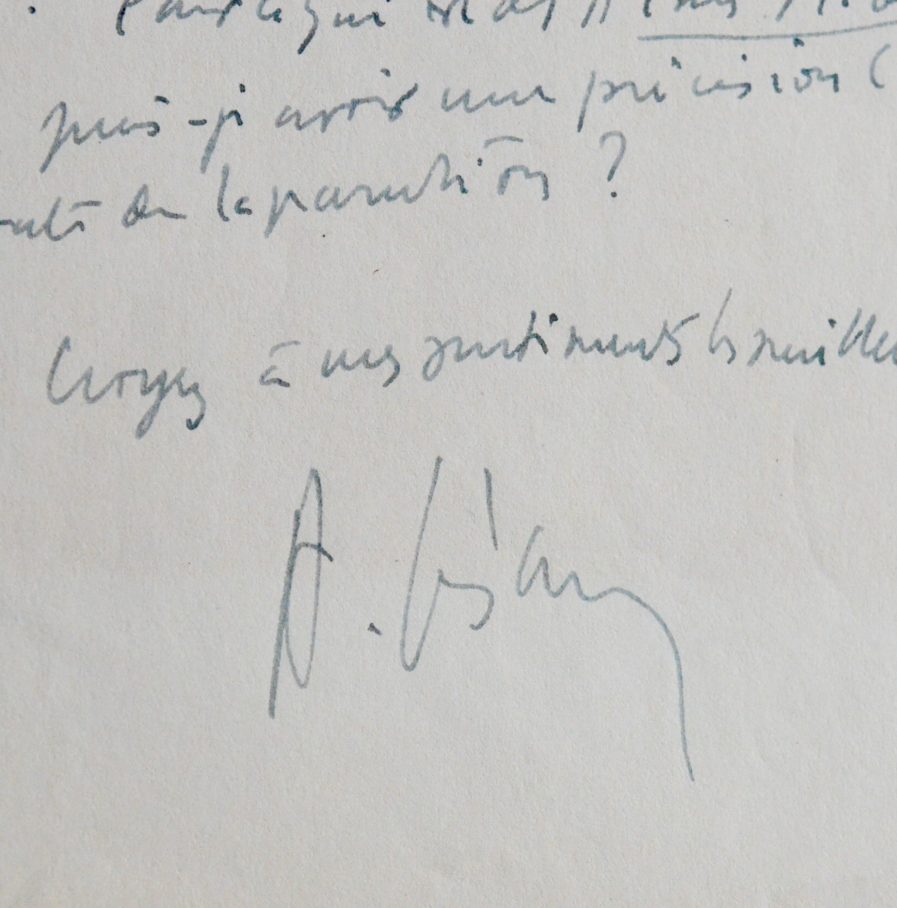 puis-je avoir une précision (
date de la parution ?
Croyez à mes sentiments les meilleu
A. Césaire